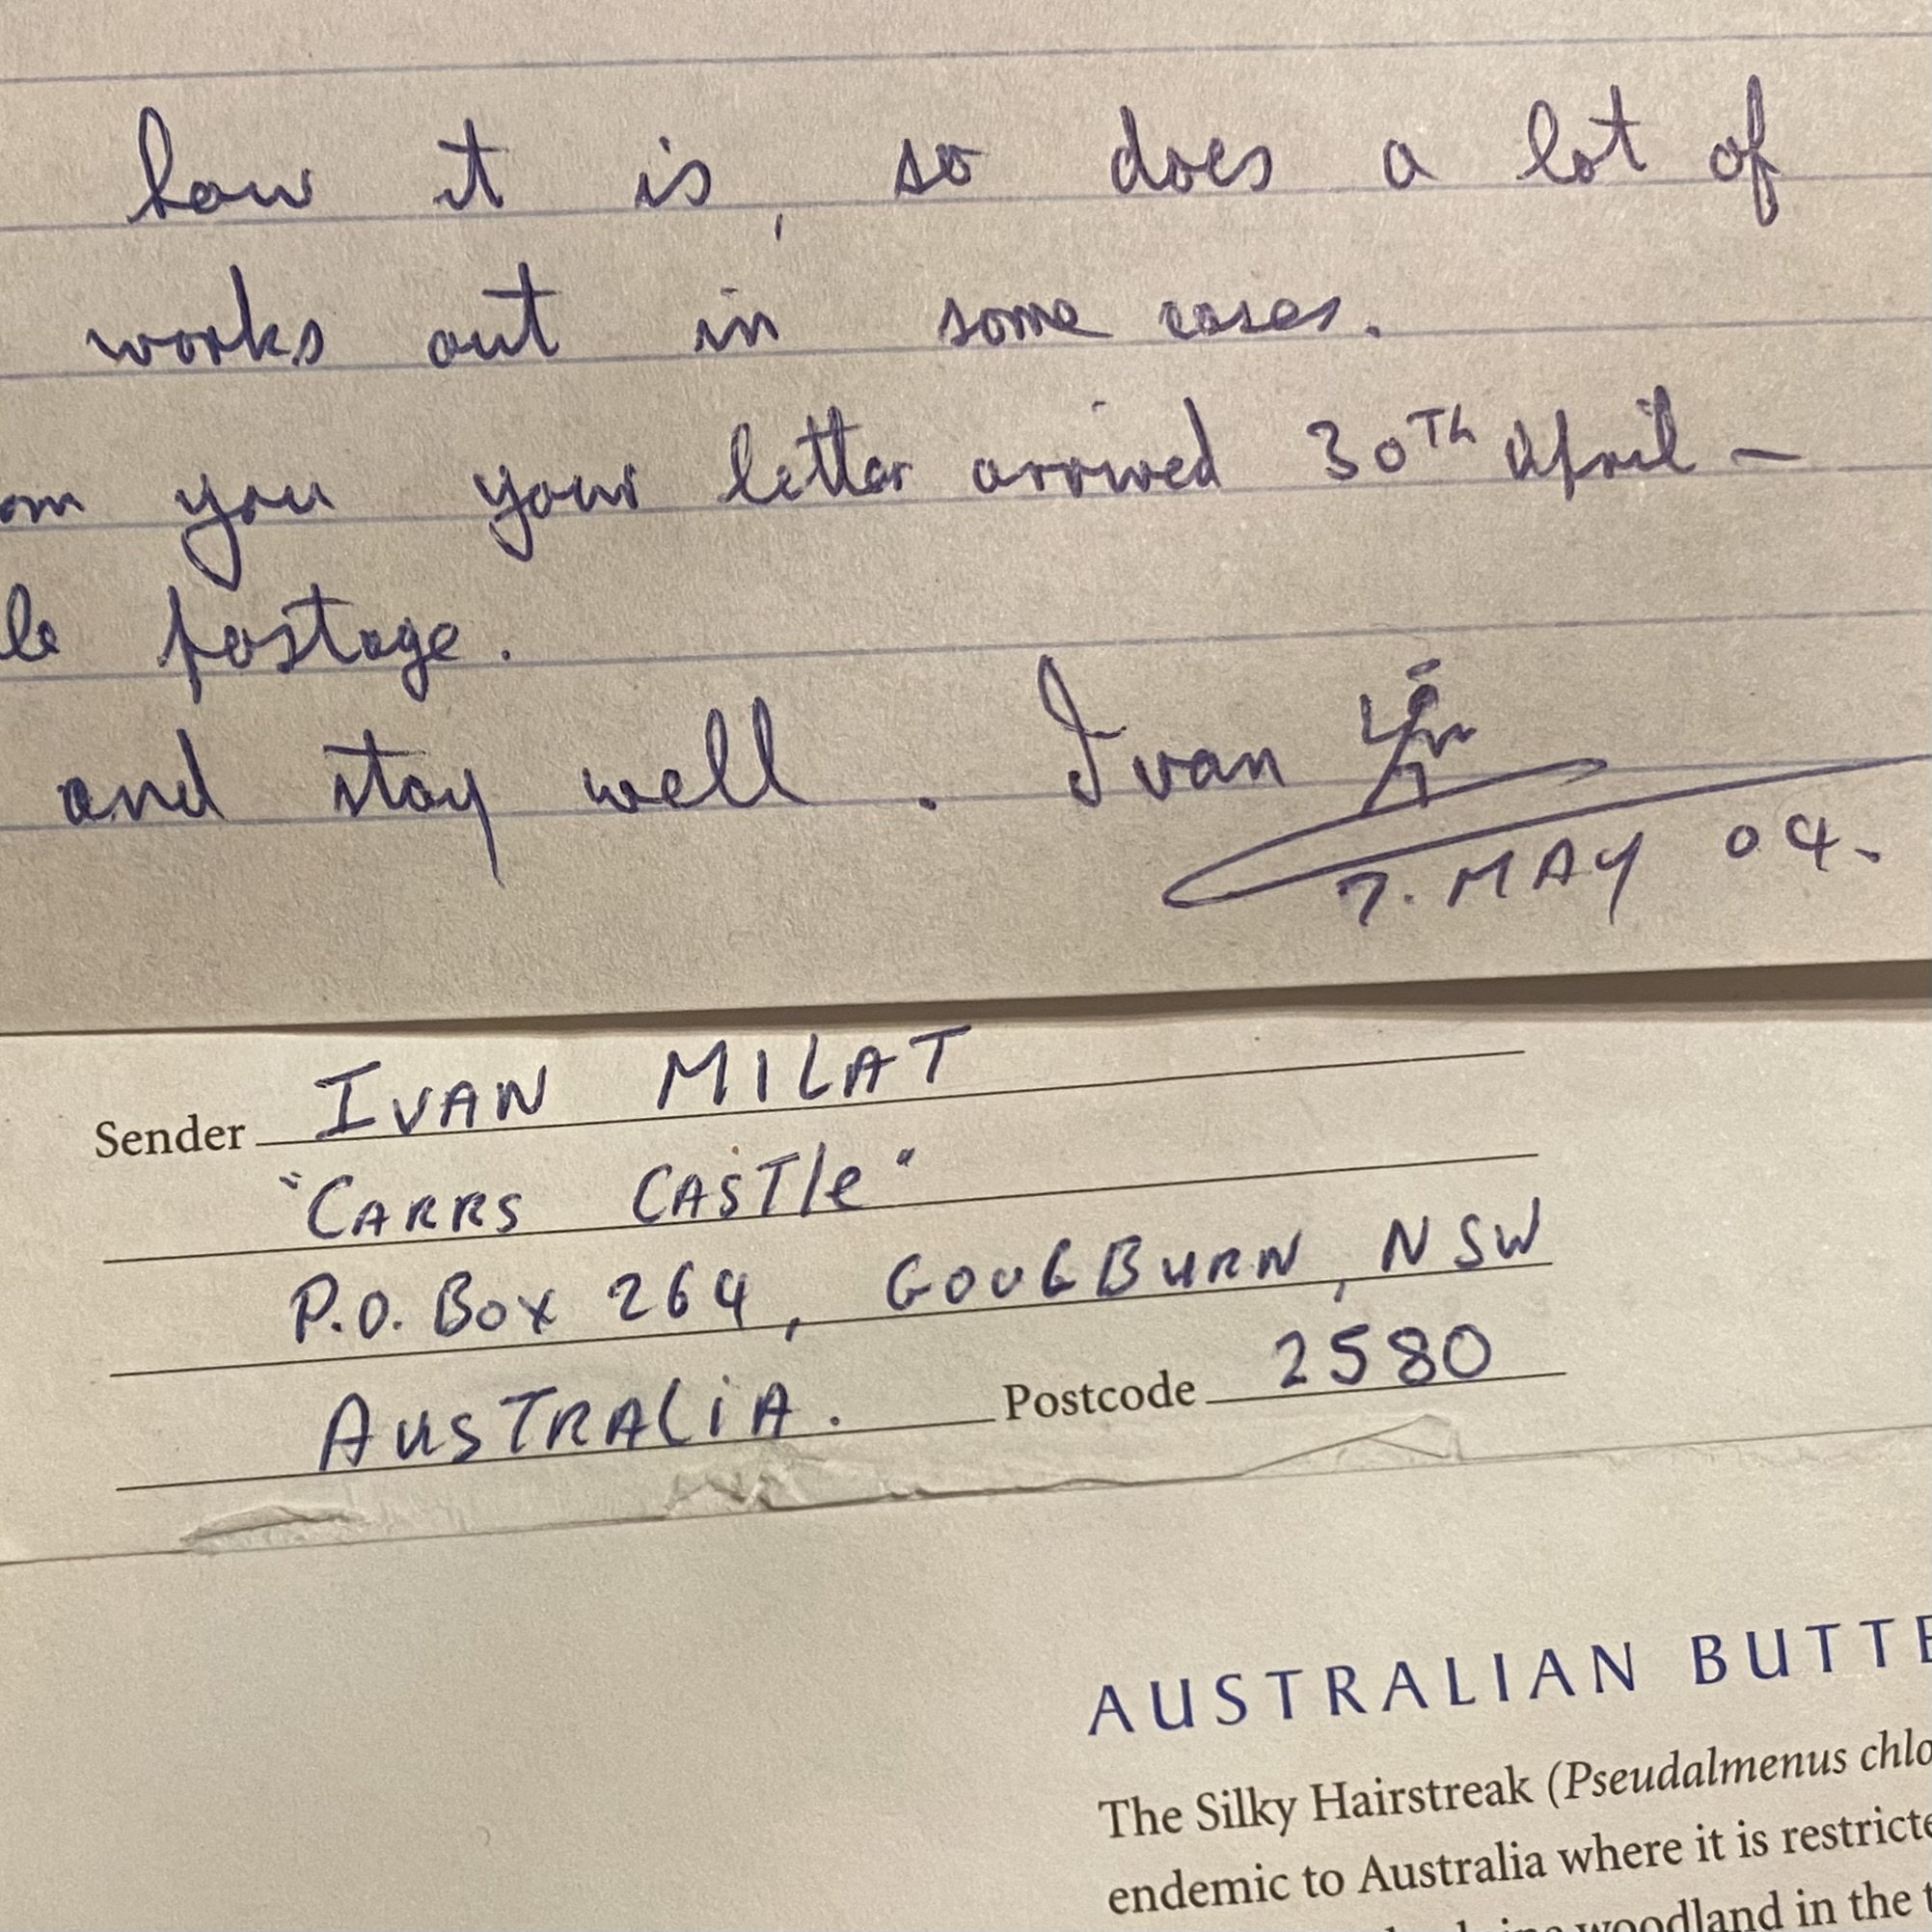 how it is, so does a lot of
works out in some cases.
om you your letter arrived 30Th April –
le postage.
and stay well. Ivan
7. MAY 04.
Sender IVAN MILAT
"CARRS CASTle"
P.O. Box 264, GOULBURN, NSW
AUSTRALiA. Postcode 2580
AUSTRALIAN BUTTE
The Silky Hairstreak (Pseudalmenus chlo
endemic to Australia where it is restricte
woodland in the t